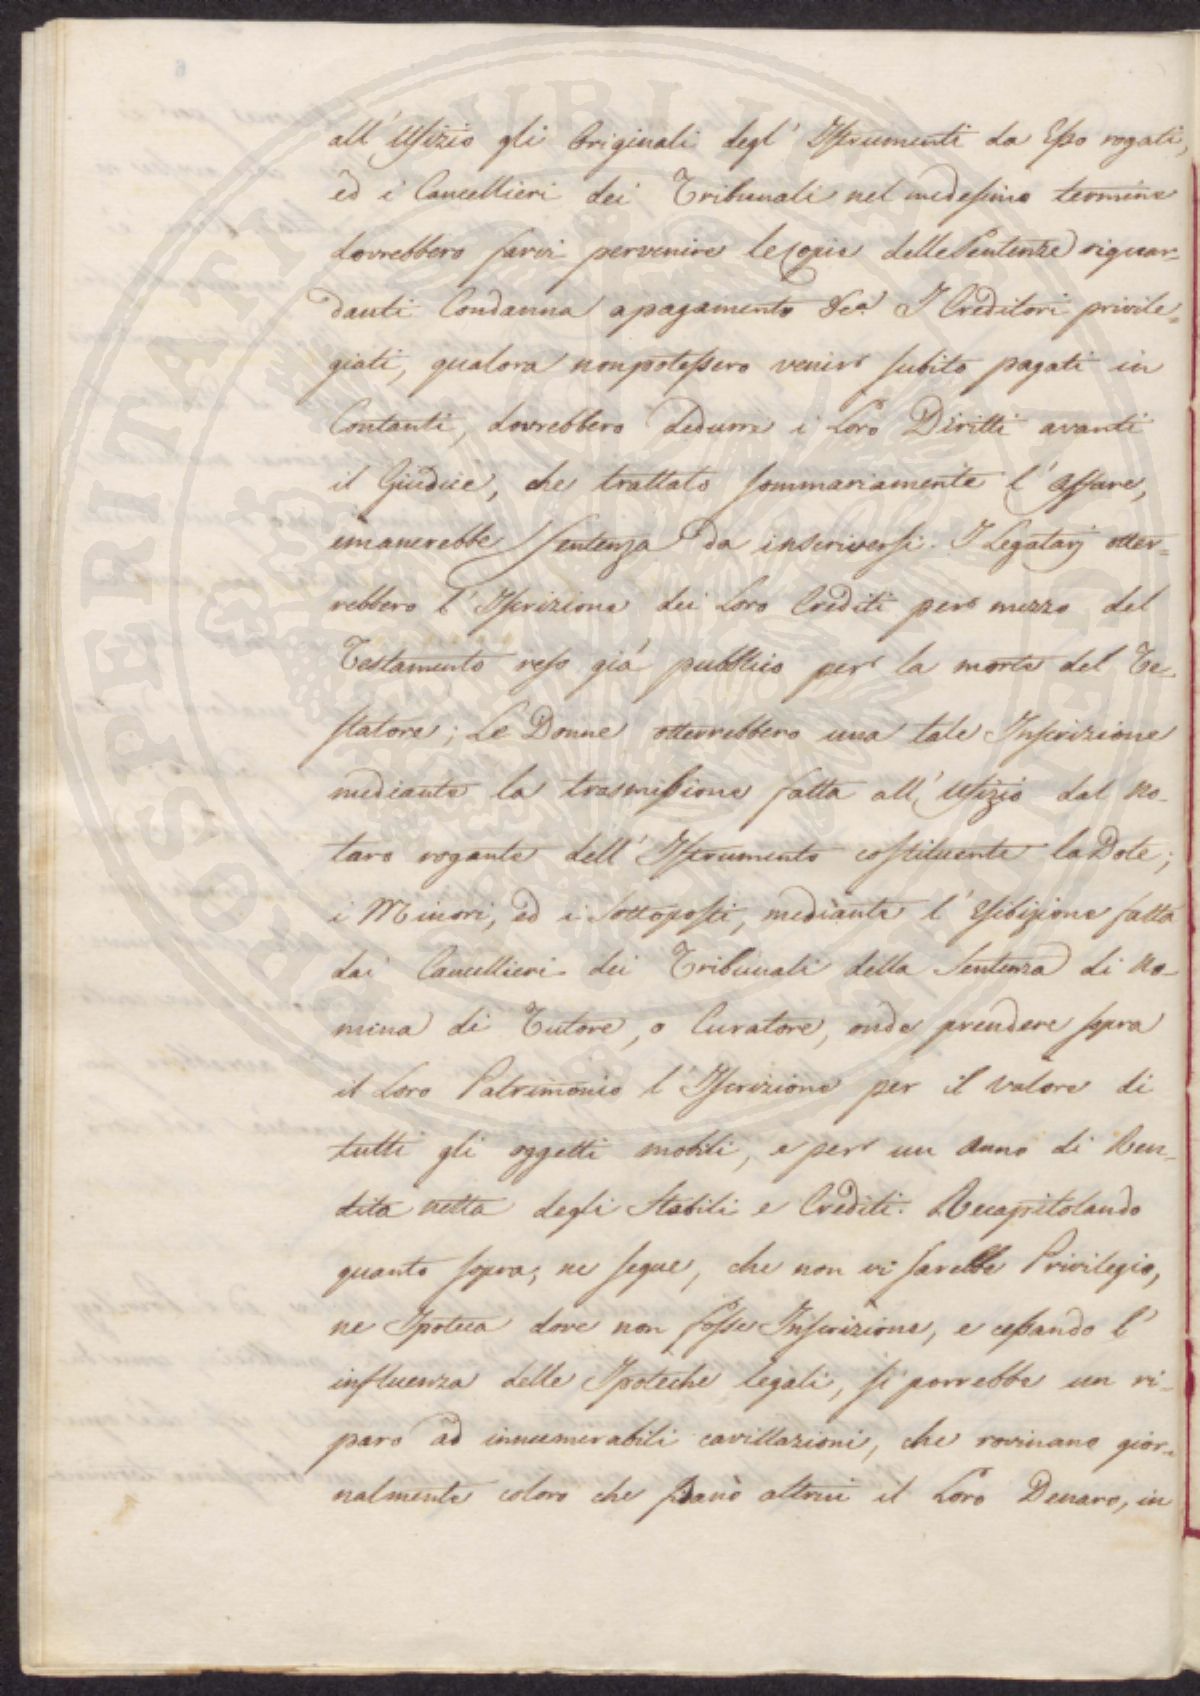 all'Uffizio gli Originali degl'Istrumenti da Esso rogati,
ed i Cancellieri dei Tribunali nel medesimo termine
dovrebbero farvi pervenire le Copie delle Sentenze riguar-
danti Condanna a pagamento &ca. I Creditori privile-
giati, qualora non potessero venir subito pagati in
Contanti, dovrebbero dedurre i Loro Diritti avanti
il Giudice, che trattato sommariamente l'Affare,
emanerebbe Sentenza da inscriversi. I Legatarj otter-
rebbero l'Iscrizione dei Loro Crediti per mezzo del
Testamento reso già pubblico per la morte del Te-
statore; Le Donne otterrebbero una tale Inscrizione
mediante la trasmissione fatta all'Uffizio dal No-
taro rogante dell'Istrumento costituente la Dote;
i Minori, ed i Sottoposti, mediante l'Esibizione fatta
dai Cancellieri dei Tribunali della Sentenza di No-
mina di Tutore, o Curatore, onde prendere sopra
il Loro Patrimonio l'Iscrizione per il valore di
tutti gli oggetti mobili, e per un Anno di Ren-
dita netta degli Stabili e Crediti. Recapitolando
quanto sopra, ne segue, che non vi sarebbe Privilegio,
ne Ipoteca dove non fosse Inscrizione, e cessando l'
influenza delle Ipoteche legali, si porrebbe un ri-
paro ad innumerabili cavillazioni, che rovinano gior-
nalmente coloro che danò altrui il Loro Denaro, in
PROSPERITATI PUBLICAE